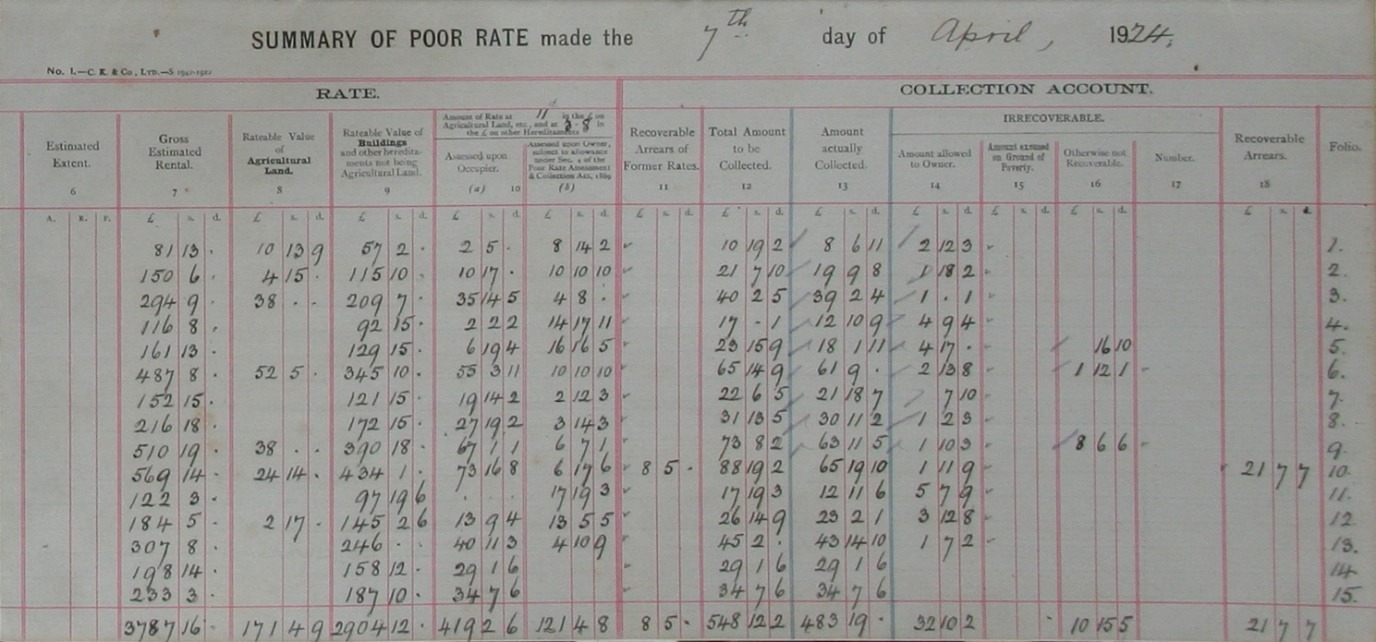 SUMMARY OF POOR RATE made the 7th day of April, 1924.
No. 1.—C. K. & Co., LTD.—S 1921-1922
RATE. COLLECTION ACCOUNT.
Amount of Rate at 11d in the £ on Agricultural Land, etc., and at 3-8 in the £ on other Hereditaments
IRRECOVERABLE.
Estimated Extent. 6
Gross Estimated Rental. 7
Rateable Value of Agricultural Land. 8
Rateable Value of Buildings and other heredita-ments not being Agricultural Land. 9
Assessed upon Occupier. (a) 10
Assessed upon Owner, subject to allowance under Sec. 4 of the Poor Rate Assessment & Collection Act, 1869 (b)
Recoverable Arrears of Former Rates. 11
Total Amount to be Collected. 12
Amount actually Collected. 13
Amount allowed to Owner. 14
Amount excused on Ground of Poverty. 15
Otherwise not Recoverable. 16
Number. 17
Recoverable Arrears. 18
Folio.
A. R. P. £ s. d. £ s. d. £ s. d. £ s. d. £ s. d. £ s. d. £ s. d. £ s. d. £ s. d. £ s. d. £ s. d. £ s. d.
81 13 · 10 13 9 57 2 · 2 5 · 8 14 2 10 19 2 8 6 11 2 12 3 1.
150 6 · 4 15 · 115 10 · 10 17 · 10 10 10 21 7 10 19 9 8 1 18 2 2.
294 9 · 38 · · 209 7 · 35 14 5 4 8 · 40 2 5 39 2 4 1 · 1 3.
116 8 · 92 15 · 2 2 2 14 17 11 17 - 1 12 10 9 4 9 4 4.
161 13 · 129 15 · 6 19 4 16 16 5 23 15 9 18 1 11 4 17 · 16 10 5.
487 8 · 52 5 · 345 10 · 55 3 11 10 10 10 65 14 9 61 9 · 2 13 8 1 12 1 6.
152 15 · 121 15 · 19 14 2 2 12 3 22 6 5 21 18 7 7 10 7.
216 18 · 172 15 · 27 19 2 3 14 3 31 13 5 30 11 2 1 2 3 8.
510 19 · 38 · · 390 18 · 67 1 1 6 7 1 73 8 2 63 11 5 1 10 3 8 6 6 9.
569 14 · 24 14 · 434 1 · 73 16 8 6 17 6 8 5 · 88 19 2 65 19 10 1 11 9 21 7 7 10.
122 3 · 97 19 6 · · · 17 19 3 17 19 3 12 11 6 5 7 9 11.
184 5 · 2 17 · 145 2 6 13 9 4 13 5 5 26 14 9 23 2 1 3 12 8 12
307 8 · 246 · · 40 11 3 4 10 9 45 2 · 43 14 10 1 7 2 13.
198 14 · 158 12 · 29 1 6 29 1 6 29 1 6 14.
233 3 · 187 10 · 34 7 6 34 7 6 34 7 6 15.
3787 16 · 171 4 9 2904 12 · 419 2 6 121 4 8 8 5 · 548 12 2 483 19 · 32 10 2 · 10 15 5 21 7 7